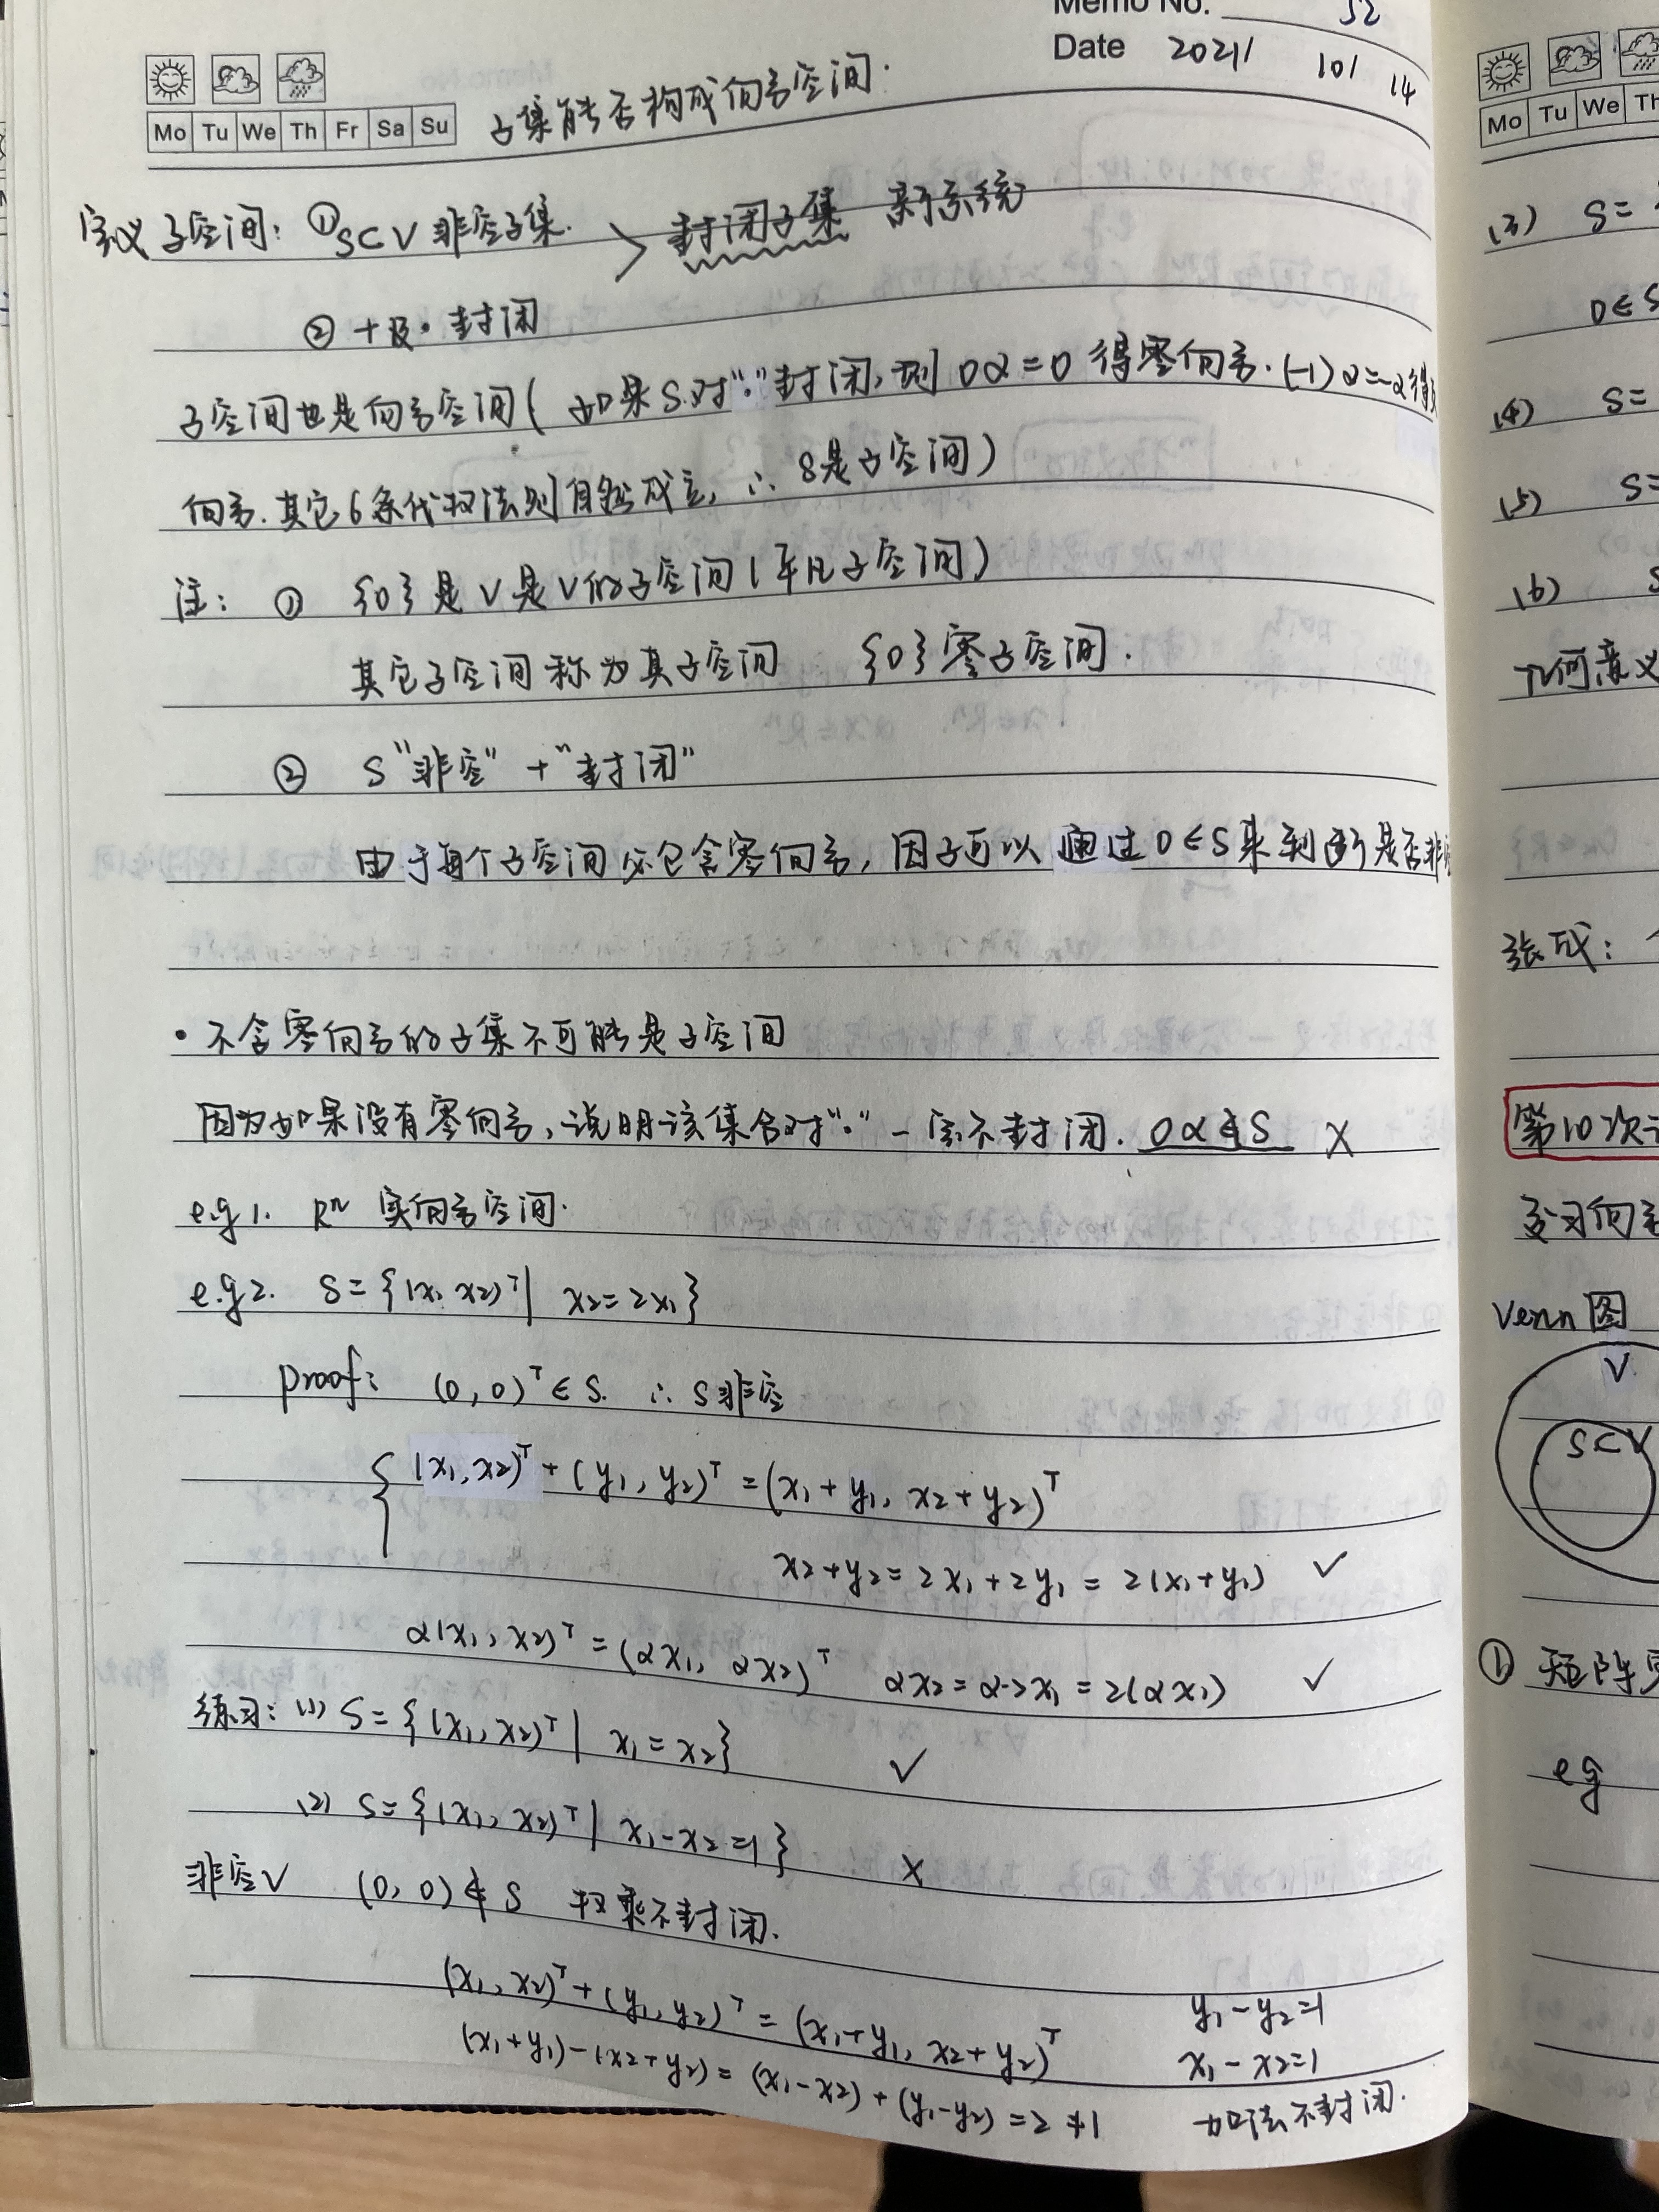 Memo No. 52
Date 2021/ 10/ 14
Mo Tu We Th Fr Sa Su
子集能否构成向量空间.
定义子空间: ①S⊂V 非空子集. > 封闭子集 新系统
② +及· 封闭
子空间也是向量空间( 如果S对"·"封闭, 则 0α=0 得零向量. (-1)α=-α得
向量. 其它6条代数法则自然成立, ∴ S是子空间)
注: ① {0}是V是V的子空间(平凡子空间)
其它子空间称为真子空间 {0}零子空间.
② S"非空" + "封闭"
由于每个子空间必包含零向量, 因子可以通过0∈S来判断是否非
• 不含零向量的子集不可能是子空间
因为如果没有零向量, 说明该集合对"·"一定不封闭. 0α∉S ×
e.g 1. Rⁿ 实向量空间.
e.g 2. S={(x₁ x₂)ᵀ| x₂=2x₁}
proof: (0,0)ᵀ∈S. ∴ S非空
{ (x₁,x₂)ᵀ+(y₁,y₂)ᵀ=(x₁+y₁, x₂+y₂)ᵀ
x₂+y₂=2x₁+2y₁=2(x₁+y₁) ✓
α(x₁,x₂)ᵀ=(αx₁, αx₂)ᵀ αx₂=α·2x₁=2(αx₁) ✓
练习: (1) S={(x₁,x₂)ᵀ| x₁=x₂} ✓
(2) S={(x₁,x₂)ᵀ| x₁-x₂=1} ×
非空✓ (0,0)∉S 数乘不封闭.
(x₁,x₂)ᵀ+(y₁,y₂)ᵀ=(x₁+y₁, x₂+y₂)ᵀ y₁-y₂=1
(x₁+y₁)-(x₂+y₂)=(x₁-x₂)+(y₁-y₂)=2≠1 x₁-x₂=1
加法不封闭.
Mo Tu We Th
(3) S=
0∈S
(4) S=
(5) S=
(6) S
几何意义
张成:
第10次
复习向量
Venn图
V
S⊂V
① 矩阵
eg